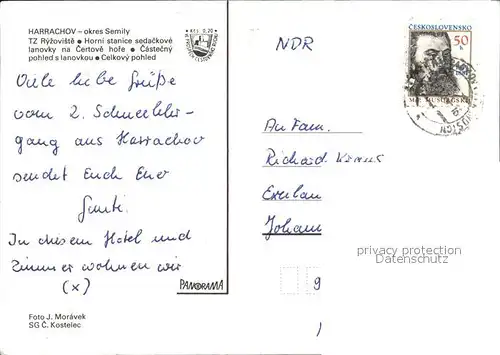 HARRACHOV – okres Semily
TZ Rýžoviště ● Horní stanice sedačkové
lanovky na Čertově hoře ● Částečný
pohled s lanovkou ● Celkový pohled
Kčs 0,20
NDR
ČESKOSLOVENSKO
50
h
Viele liebe Grüße
vom 2. Schneelehr-
gang aus Harrachov
sendet Euch Euer
In diesem Hotel und
Zimmer wohnen wir
(x)
An Fam.
Richard
Johann
9
privacy protection
Datenschutz
PANORAMA
Foto J. Morávek
SG Č. Kostelec